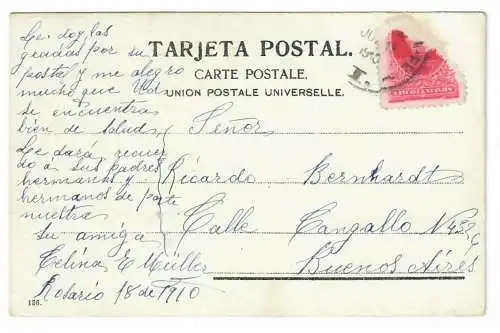 Le doy las
gracias por su
postal y me alegro
mucho que Vd.
se encuentra
bien de salud.
Le dará recuer
do á sus padres
hermanas y
hermanos de parte
nuestra
su amiga
Celina E Müller
Rosario 18 de 1910
TARJETA POSTAL.
CARTE POSTALE.
UNION POSTALE UNIVERSELLE.
Señor
Ricardo Bernhardt
Calle Cangallo N
Buenos Aires
126.